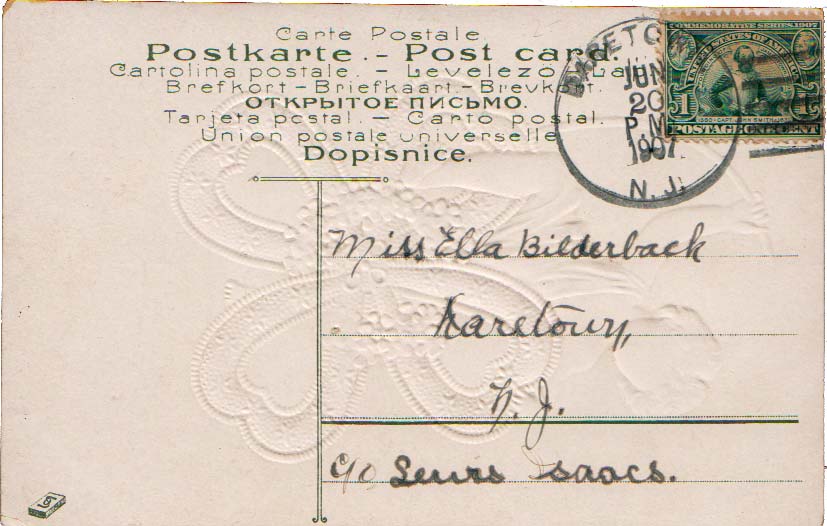 Carte Postale.
Postkarte. - Post card.
Cartolina postale. - Levelező - Lap
Brefkort - Briefkaart - Brevkort.
ОТКРЫТОЕ ПИСЬМО.
Tarjeta postal. - Carto postal.
Union postale universelle
Dopisnice.
COMMEMORATIVE SERIES 1907
UNITED STATES OF AMERICA
1 1
CAPT. JOHN SMITH
POSTAGE ONE CENT
JUN
20
P.M
1907
N.J.
Miss Ella Bilderback
Daretown,
N.J.
c/o Lewis Isaacs.